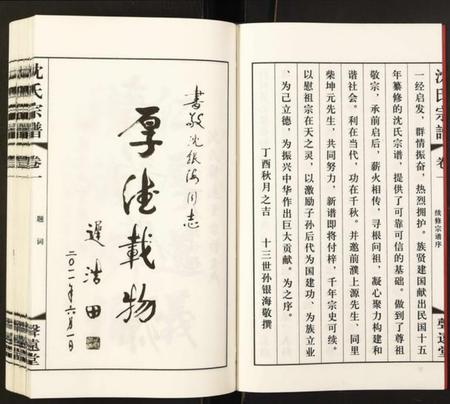 沈氏宗譜
卷一
续修宗谱序
聲遠堂
一经启发，群情振奋，热烈拥护。族贤建国献出民国十五
年纂修的沈氏宗谱，提供了可靠可信的基础。做到了尊祖
敬宗，承前启后，薪火相传，寻根问祖，凝心聚力构建和
谐社会。利在当代，功在千秋。并邀前濮上源先生、同里
柴坤元先生，共同努力，新谱即将付梓，千年宗史可续。
以慰祖宗在天之灵，以激励子孙后代为国建功、为族立业
、为己立德，为振兴中华作出巨大贡献。为之序。
丁酉秋月之吉 十三世孙银海敬撰
書敬沈银海同志
厚德載物
遲浩田
二〇一一年六月一日
沈氏宗譜
卷一
题词
聲遠堂